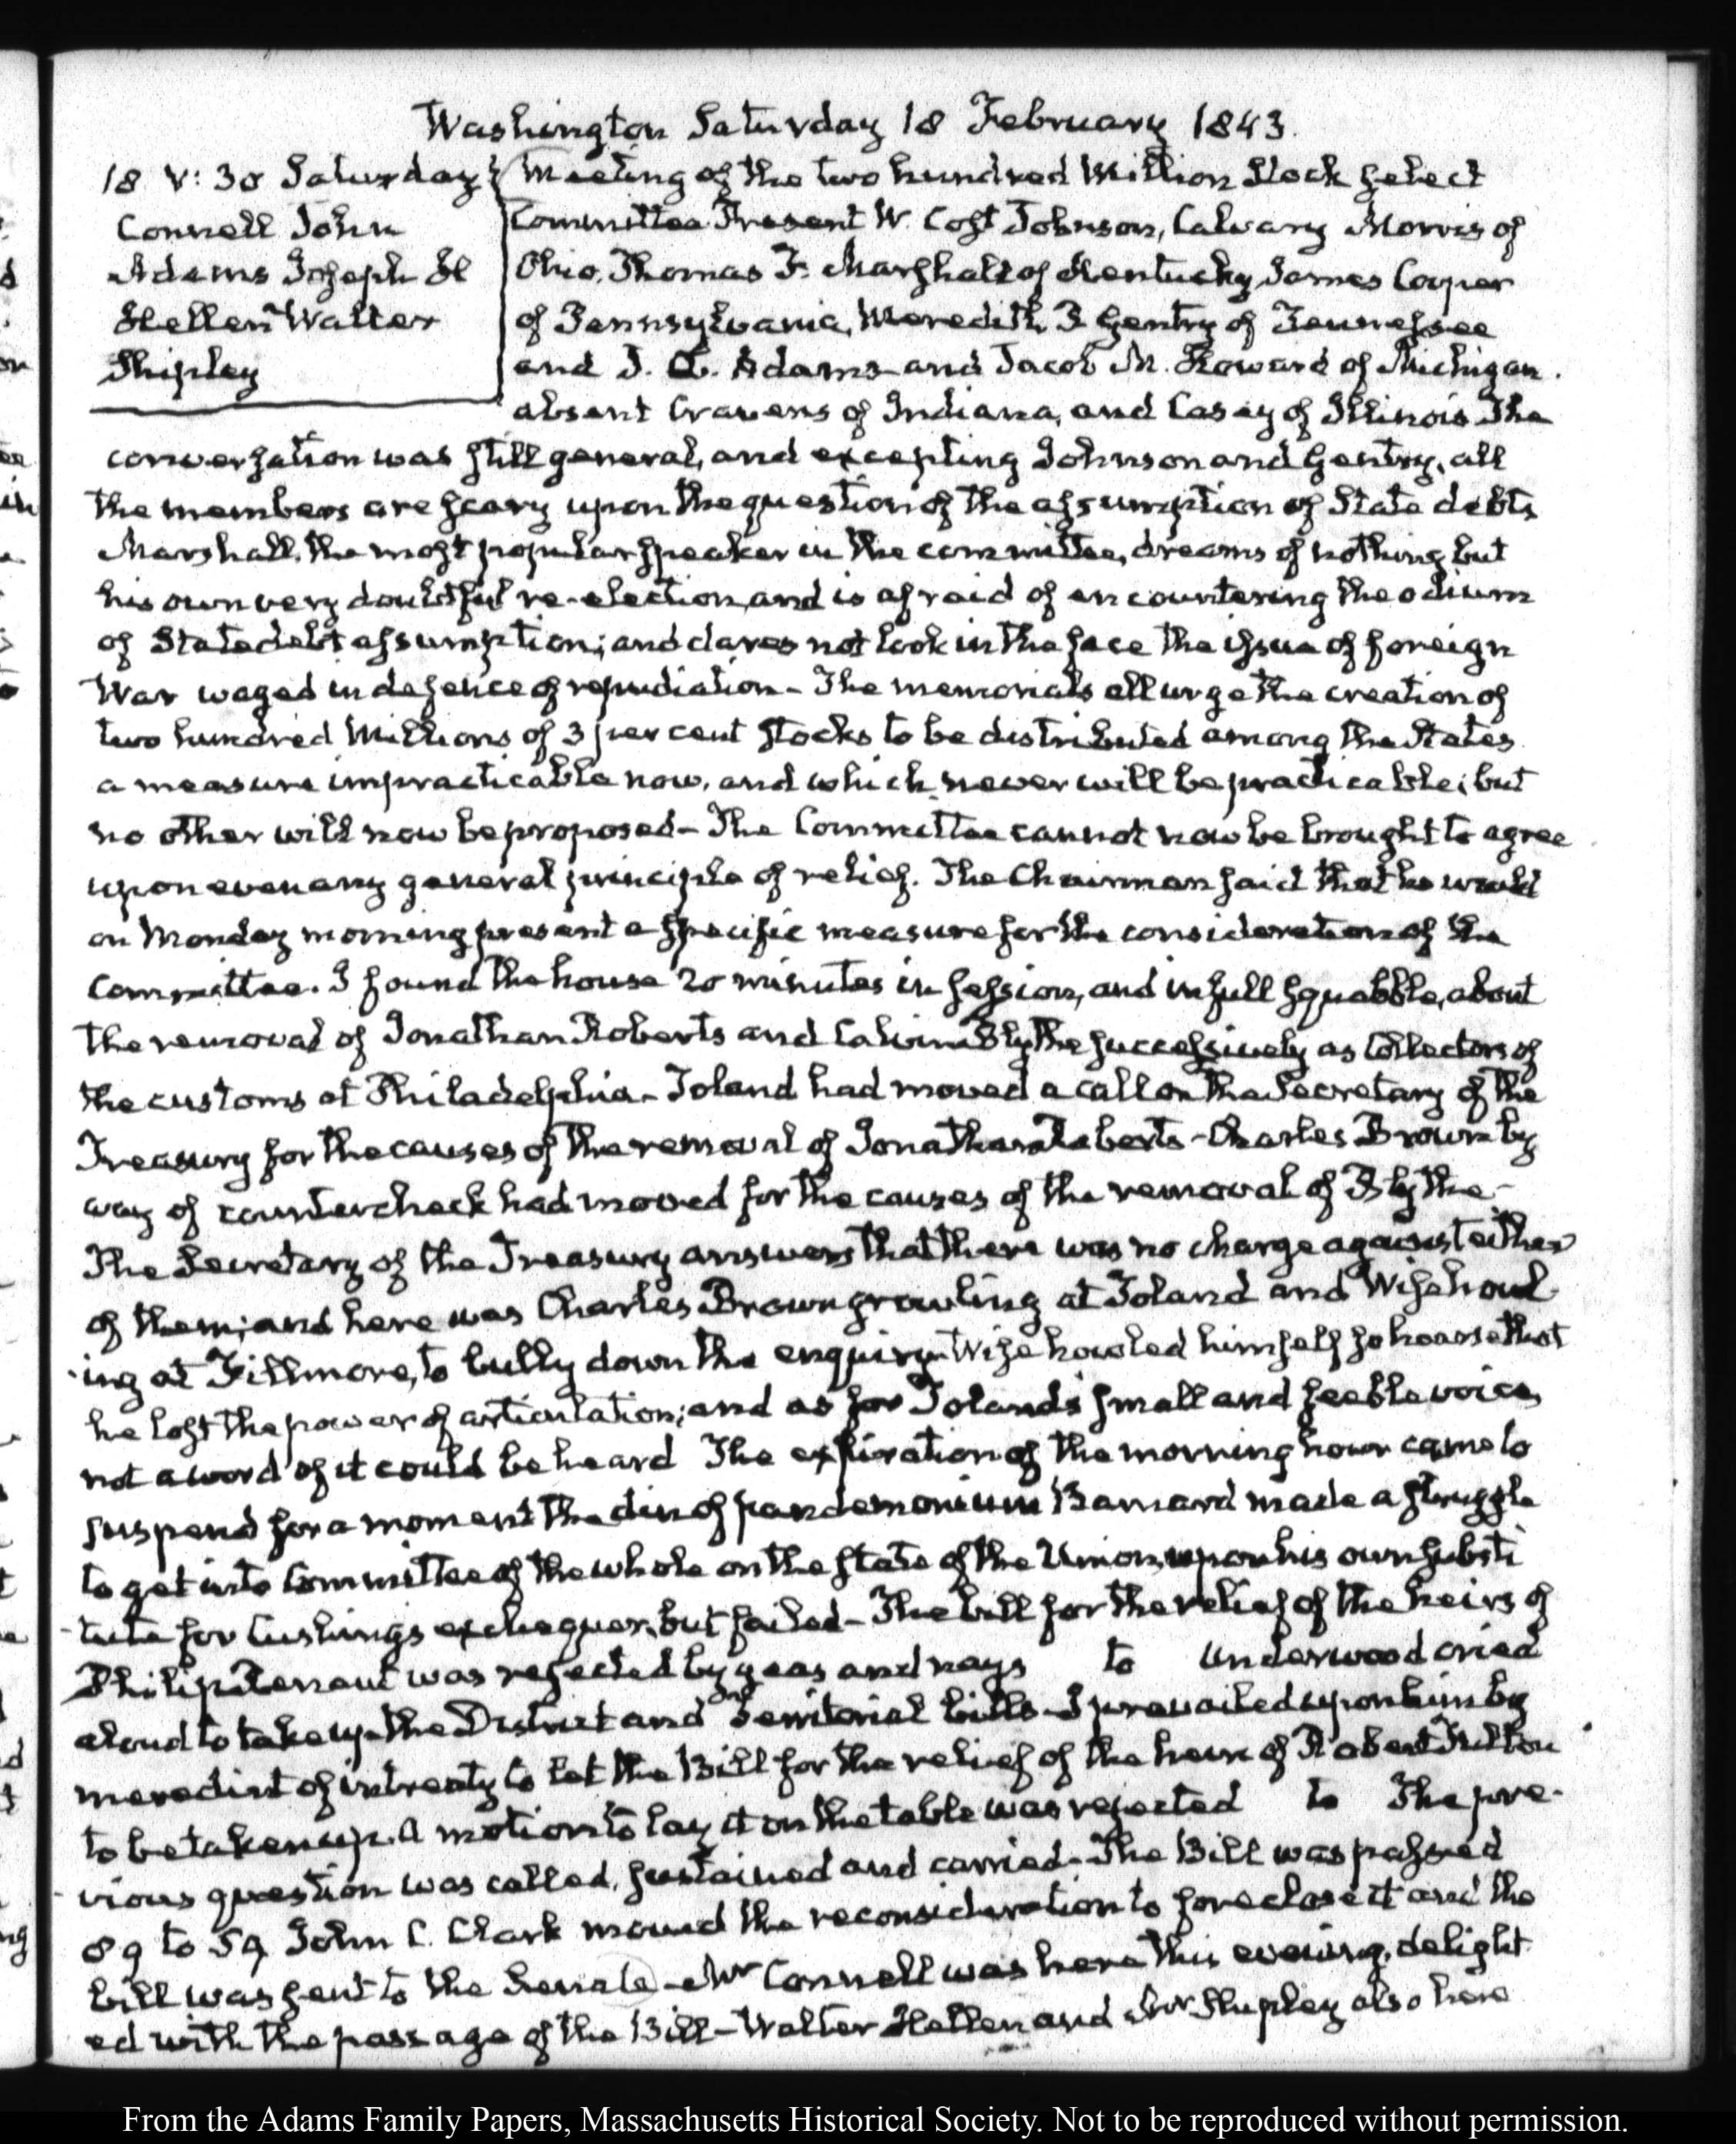 Washington Saturday 18 February 1843.
18 V: 30 Saturday
Connell John
Adams Joseph H
Hellen Walter
Shipley
Meeting of the two hundred Million Stock Select
Committee. Present W. Cost Johnson, Calvary Morris of
Ohio, Thomas F. Marshall of Kentucky, James Cooper
of Pennsylvania, Meredith P. Gentry of Tennessee
and J. Q. Adams and Jacob M. Howard of Michigan.
absent Cravens of Indiana, and Casey of Illinois. The
conversation was still general, and excepting Johnson and Gentry, all
the members are scary upon the question of the assumption of State debts,
Marshall, the most popular speaker in the committee, dreams of nothing but
his own very doubtful re-election, and is afraid of encountering the odium
of State debt assumption; and dares not look in the face the issue of foreign
War waged in defence of repudiation - The memorials all urge the creation of
two hundred Millions of 3 per cent stocks to be distributed among the States
a measure impracticable now, and which never will be practicable; but
no other will now be proposed - The Committee cannot now be brought to agree
upon even any general principle of relief. The Chairman said that he would
on Monday morning present a specific measure for the consideration of the
Committee. I found the house 20 minutes in session, and in full squabble, about
the removal of Jonathan Roberts and Calvin Blythe successively as Collectors of
the customs at Philadelphia - Toland had moved a call on the Secretary of the
Treasury for the causes of the removal of Jonathan Roberts - Charles Brown by
way of countercheck had moved for the causes of the removal of Blythe -
The Secretary of the Treasury answers that there was no charge against either
of them; and here was Charles Brown growling at Toland and Wise howl-
ing at Fillmore, to bully down the enquiry - Wise howled himself so hoarse that
he lost the power of articulation; and as for Toland's small and feeble voice,
not a word of it could be heard The expiration of the morning hour came to
suspend for a moment the din of pandemonium Barnard made a struggle
to get into Committee of the whole on the state of the Union, upon his own substi
tute for Cushing's exchequer, but failed - The bill for the relief of the heirs of
Philip Renaut was rejected by yeas and nays to Underwood cried
aloud to take up the District and Territorial bills - I prevailed upon him by
mere dint of intreaty to let the Bill for the relief of the heirs of Robert Fulton
to be taken up. A motion to lay it on the table was rejected to The pre-
vious question was called, sustained and carried - The Bill was passed
89 to 59 John C. Clark moved the reconsideration to foreclose it and the
bill was sent to the Senate - Mr Connell was here this evening, delight
ed with the passage of the Bill - Walter Hellen and Mr Shipley also here
From the Adams Family Papers, Massachusetts Historical Society. Not to be reproduced without permission.